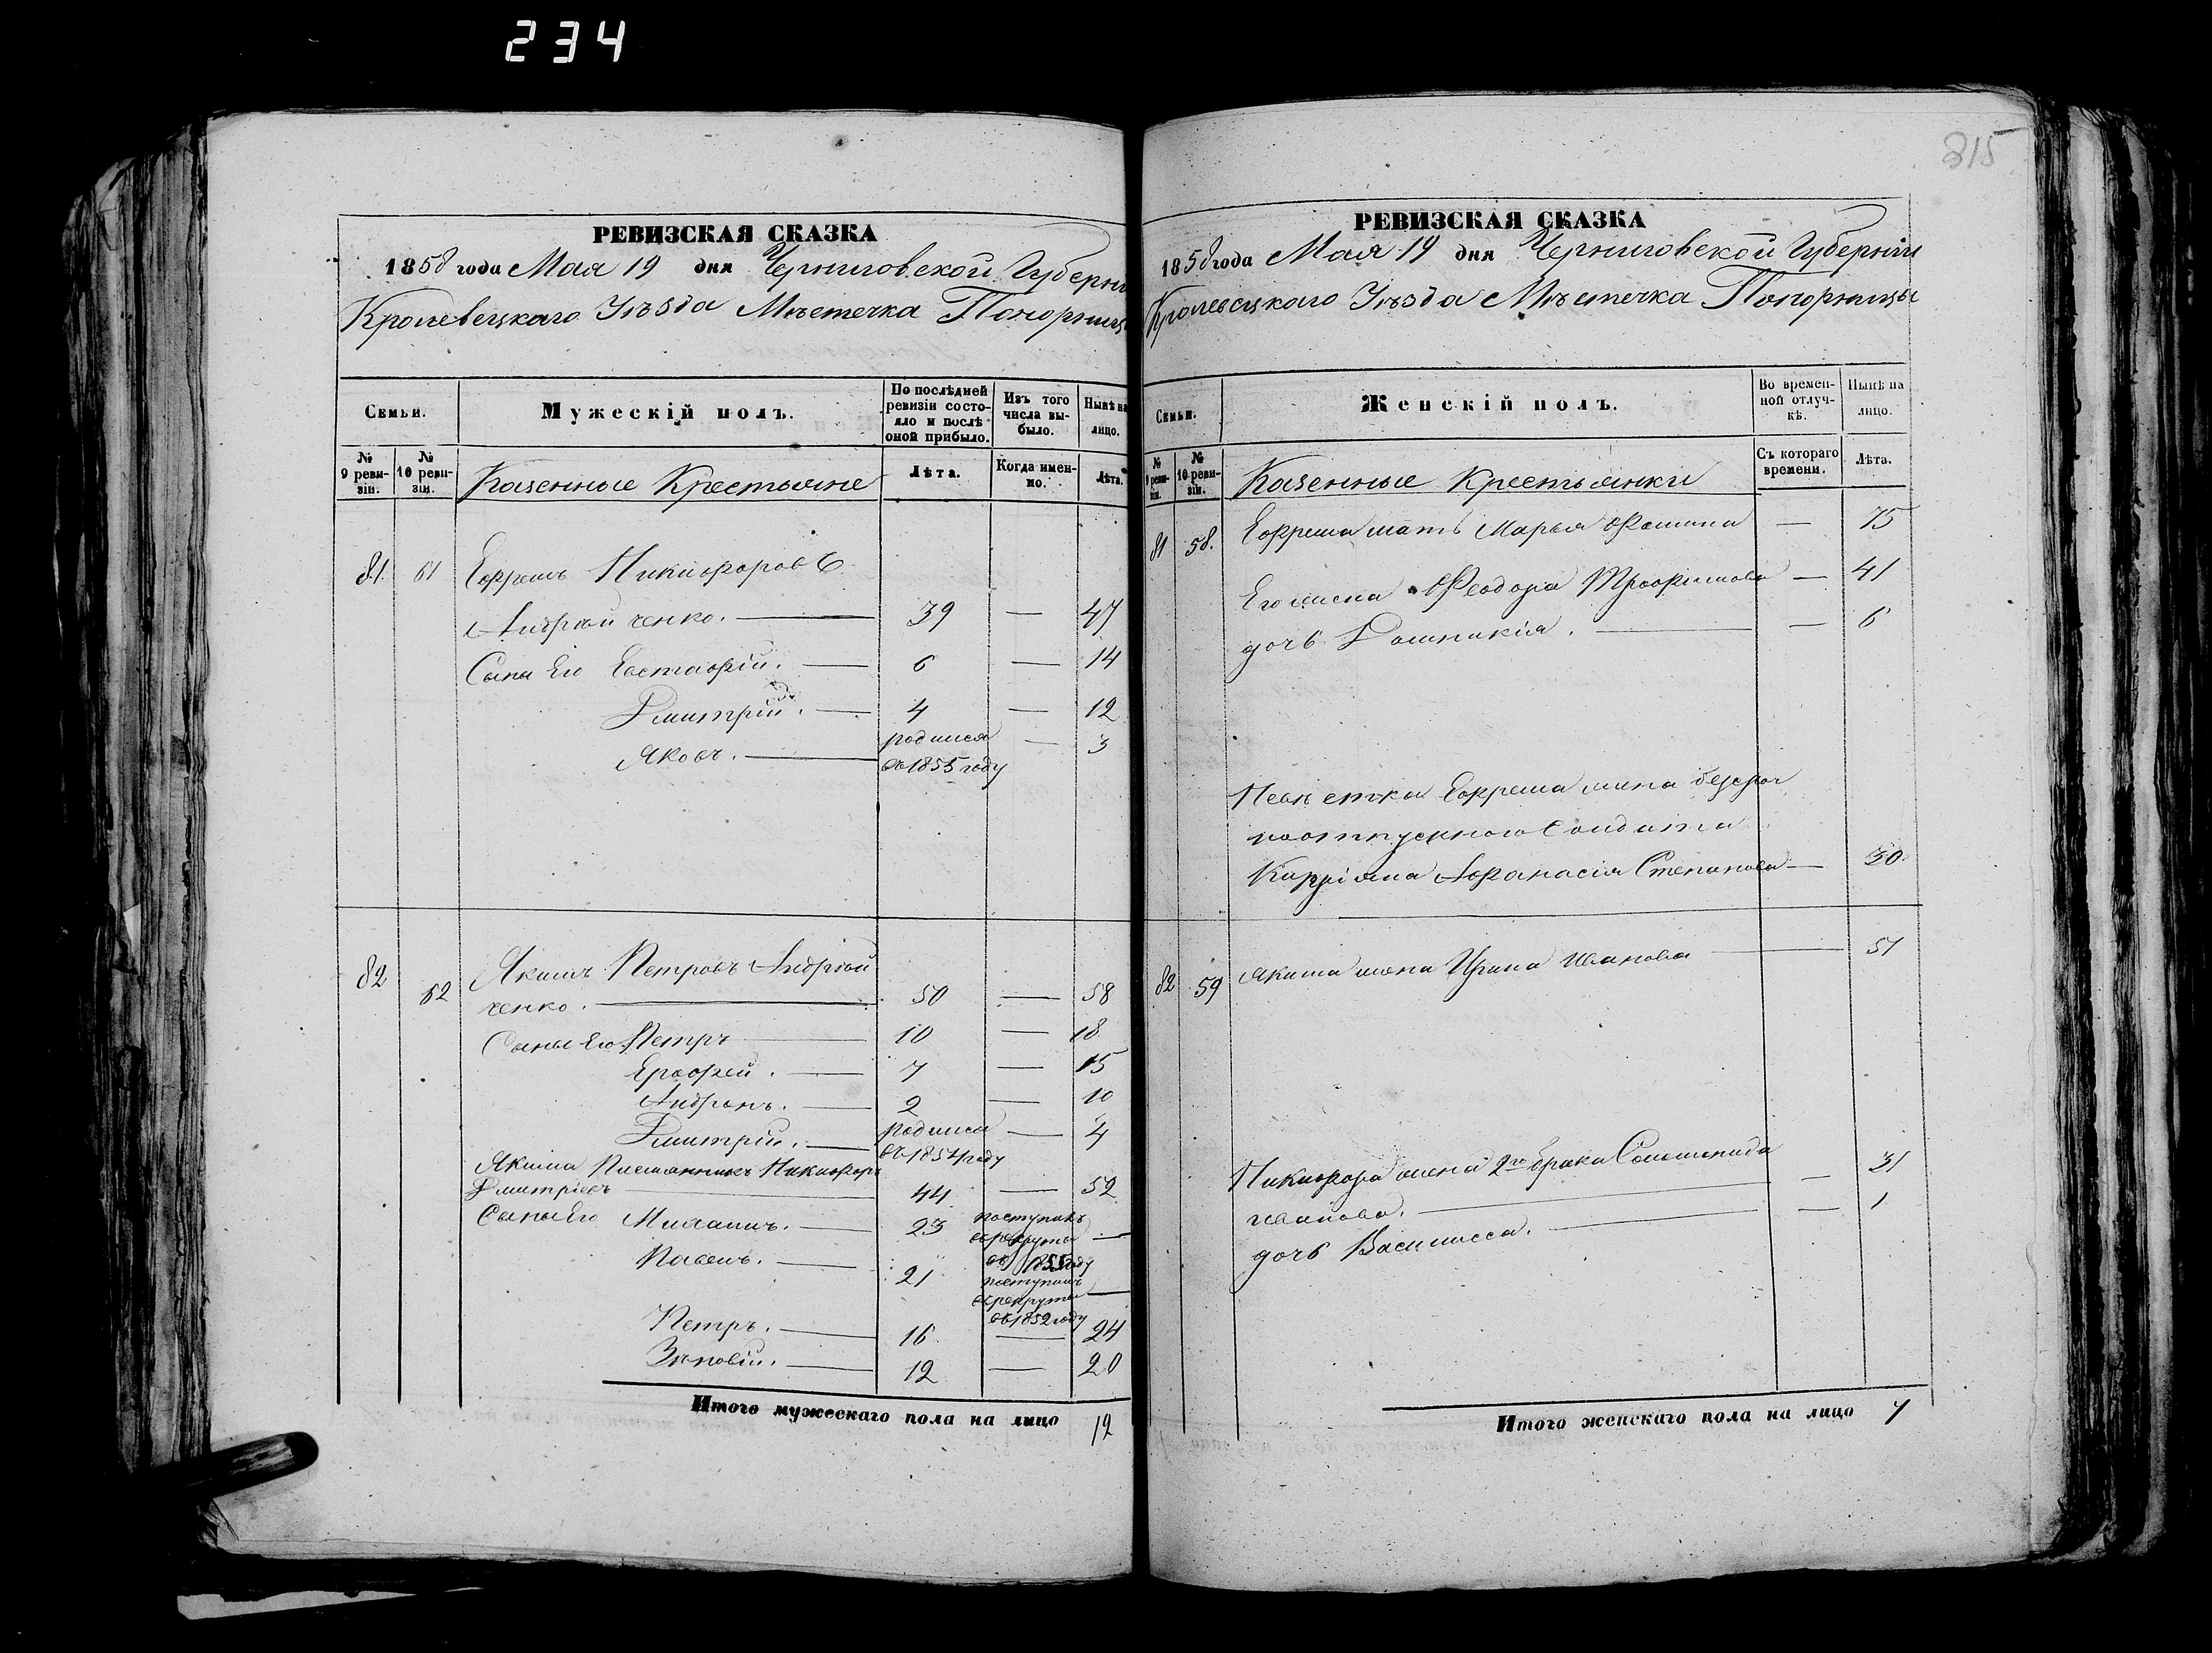 234
815
РЕВИЗСКАЯ СКАЗКА
1858 года Мая 19 дня Черниговской Губерніи
Кролевецкаго Уѣзда Мѣстечка Понорницы
Семьи.
Мужескій полъ.
По послѣдней ревизіи состояло и послѣ оной прибыло.
Изъ того числа выбыло.
Нынѣ на лицо.
№ 9 ревизіи.
№ 10 ревизіи.
Казенные Крестьяне
Лѣта.
Когда именно.
Лѣта.
81. 61 Ефремъ Никифоровъ
Андрѣйченко. 39 — 47
Сыны Его Евстафій. 6 — 14
Дмитрій. 4 — 12
Яковъ. родился въ 1855 году — 3
82 62 Якимъ Петровъ Андрѣй
ченко. 50 — 58
Сыны Его Петръ 10 — 18
Ерофей. 7 — 15
Андронъ. 2 — 10
Дмитрій. родился въ 1854 году — 4
Якима Племянникъ Никифоръ
Дмитріевъ 44 — 52
Сыны Его Михаилъ. 23 поступилъ въ рекруты въ 1855 году —
Павелъ. 21 поступилъ въ рекруты въ 1852 году —
Петръ. 16 — 24
Зѣновій. 12 — 20
Итого мужескаго пола на лицо 12
РЕВИЗСКАЯ СКАЗКА
1858 года Мая 19 дня Черниговской Губерніи
Кролевецкаго Уѣзда Мѣстечка Понорницы
Семьи.
Женскій полъ.
Во временной отлучкѣ.
Нынѣ на лицо.
№ 9 ревизіи.
№ 10 ревизіи.
Казенные Крестьянки
Съ котораго времени.
Лѣта.
81 58. Ефрема мать Марья Фомина — 75
Его жена Феодора Трофимова — 41
дочь Домникія. — 6
Невѣстка Ефрема жена безсроч
ноотпускного Солдата
Кипріяна Афанасія Степанова — 30
82 59 Якима жена Ирина Иванова — 51
Никифора жена 2го брака Соломонида
Иванова. — 31
дочь Василисса. — 1
Итого женскаго пола на лицо 7